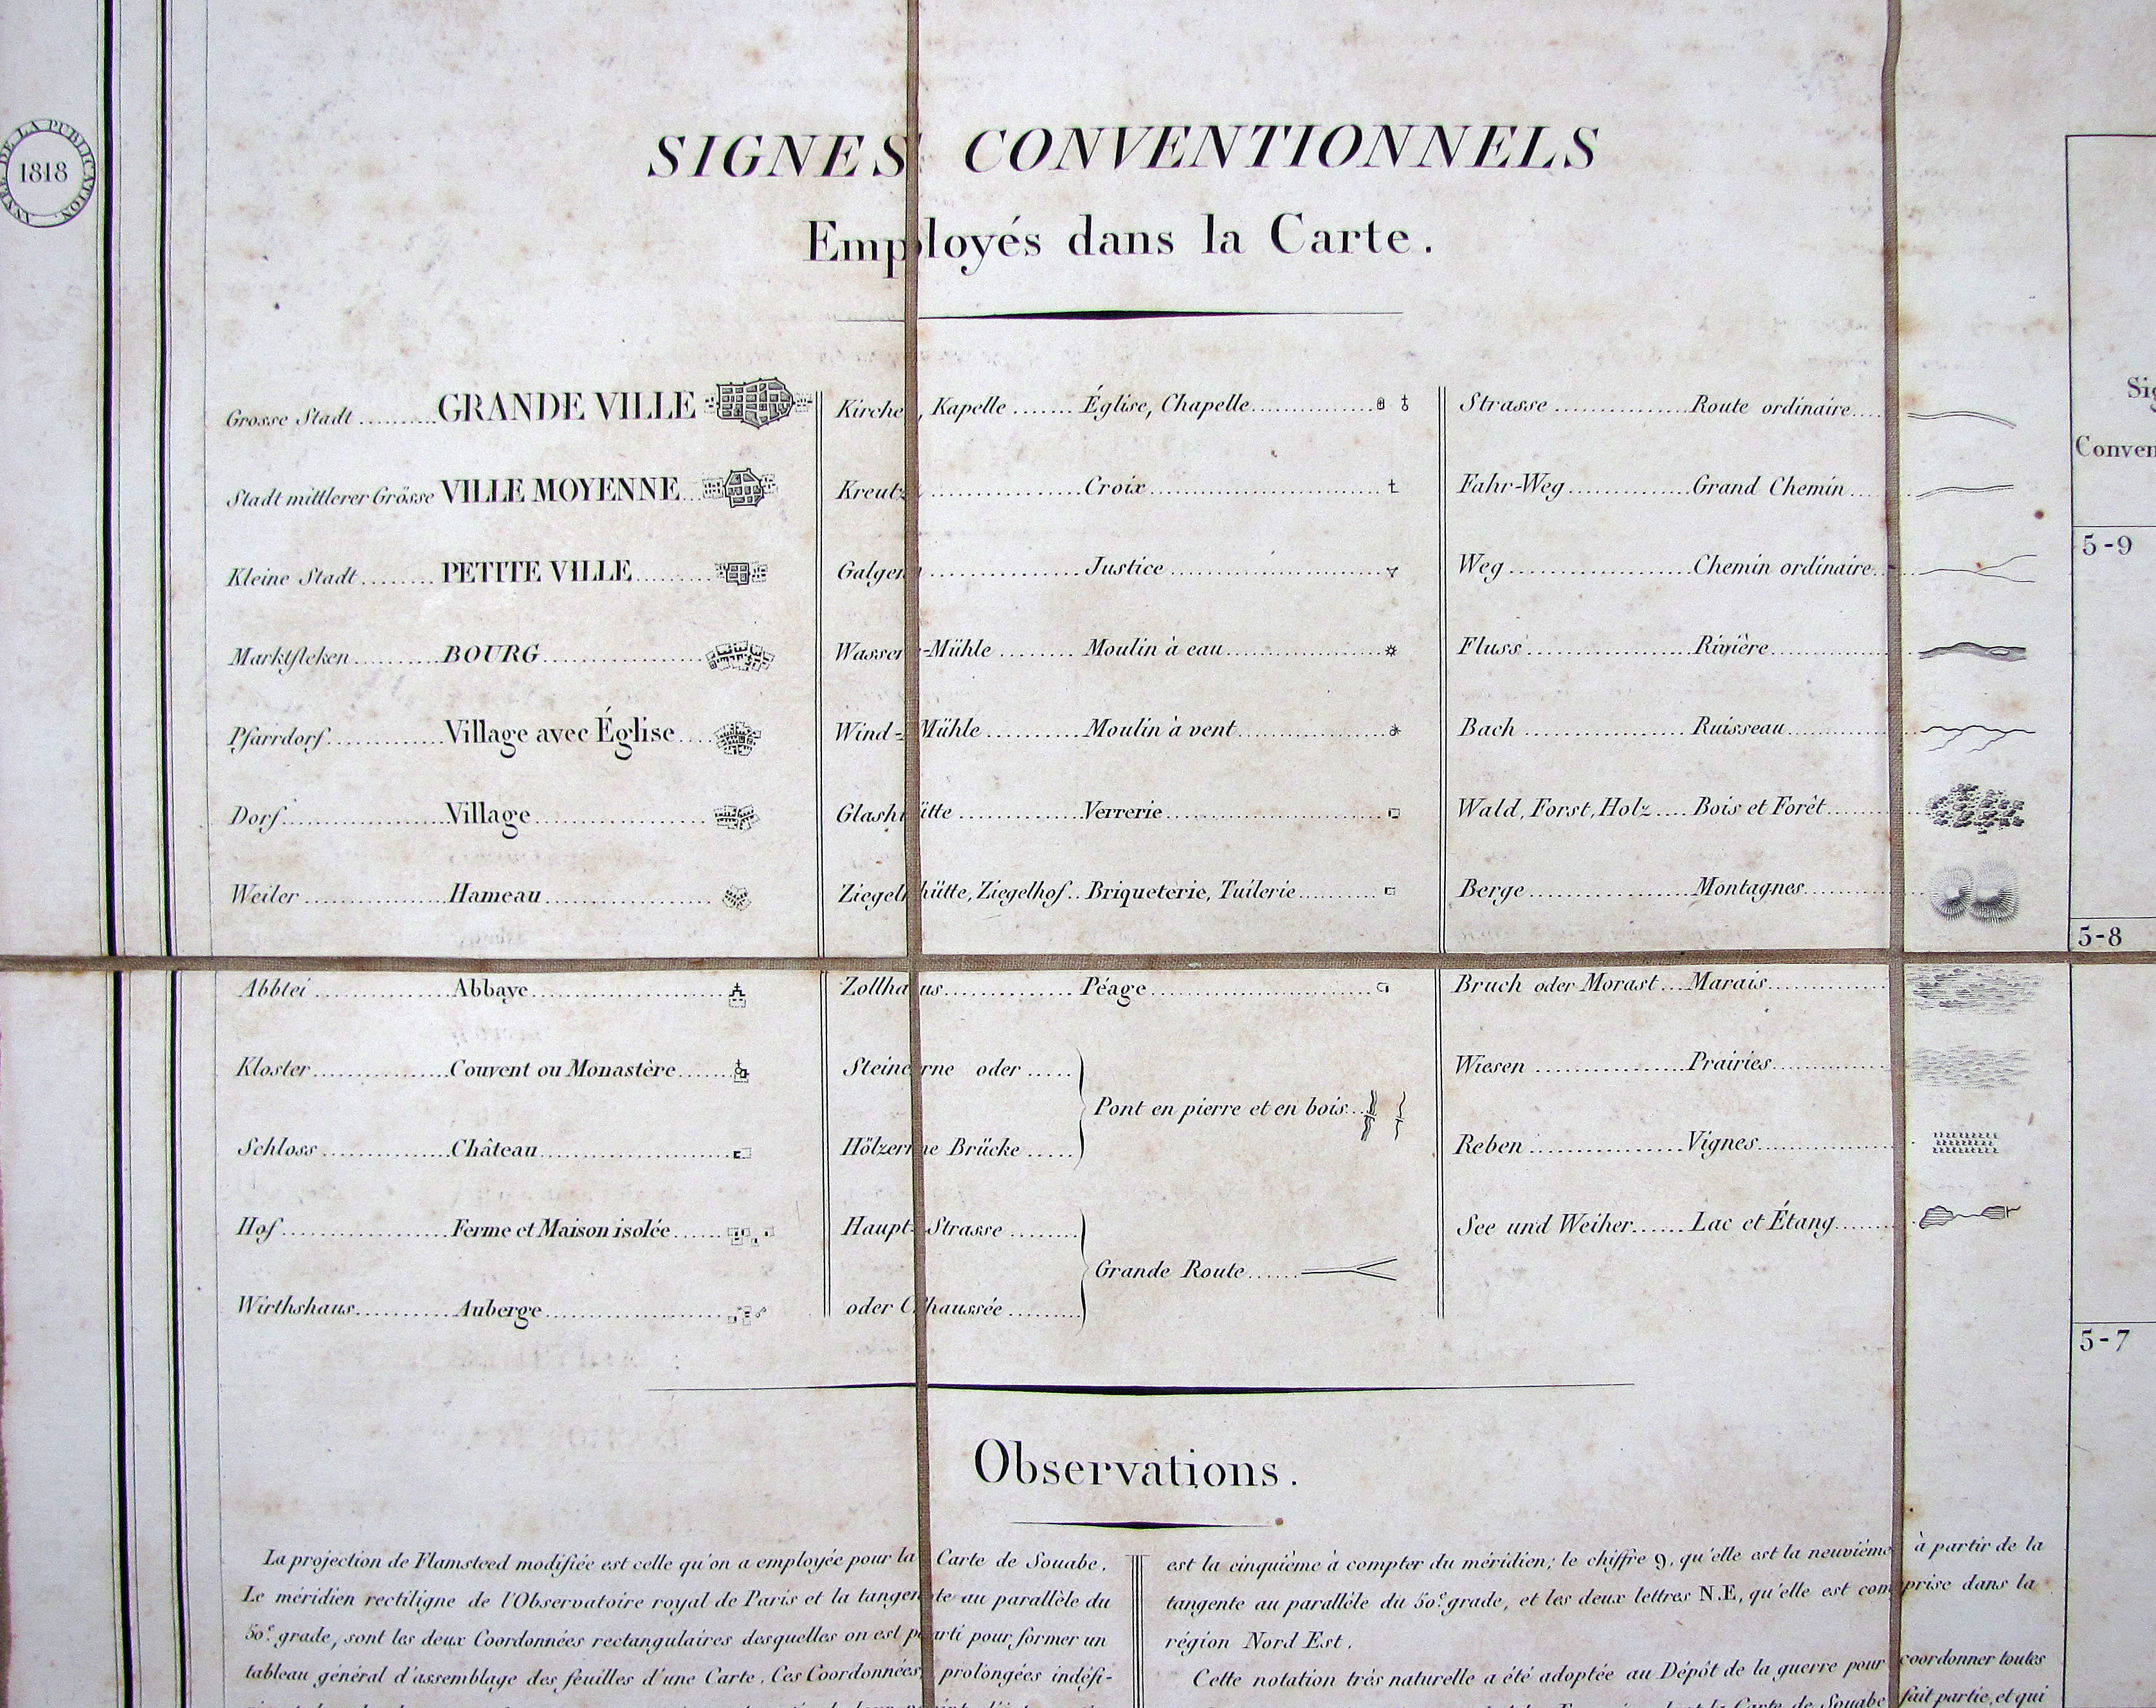 ANNÉE DE LA PUBLICATION.
1818
SIGNES CONVENTIONNELS
Employés dans la Carte.
Grosse Stadt ......... GRANDE VILLE
Stadt mittlerer Grösse VILLE MOYENNE...
Kleine Stadt........ PETITE VILLE............
Marktfleken......... BOURG.................
Pfarrdorf............ Village avec Église....
Dorf................. Village.................
Weiler............... Hameau.................
Abbtei............... Abbaye.................
Kloster.............. Couvent ou Monastère......
Schloss.............. Château.................
Hof.................. Ferme et Maison isolée......
Wirthshaus.......... Auberge.................
Kirche, Kapelle ....... Église, Chapelle.............
Kreutz ................ Croix.......................
Galgen ................ Justice .....................
Wasser-Mühle ........ Moulin à eau................
Wind-Mühle .......... Moulin à vent...............
Glashütte ............. Verrerie....................
Ziegelhütte, Ziegelhof.. Briqueterie, Tuilerie..........
Zollhaus.............. Péage.......................
Steinerne oder .....
Pont en pierre et en bois...
Hölzerne Brücke .....
Haupt-Strasse ........
Grande Route......
oder Chaussée ........
Strasse .............. Route ordinaire....
Fahr-Weg............. Grand Chemin....
Weg.................. Chemin ordinaire...
Fluss................ Rivière.............
Bach ................ Ruisseau............
Wald, Forst, Holz .... Bois et Forêt........
Berge................ Montagnes...........
Bruch oder Morast ... Marais..............
Wiesen .............. Prairies............
Reben ............... Vignes..............
See und Weiher...... Lac et Étang........
Conven
5-9
5-8
5-7
Observations.
La projection de Flamsteed modifiée est celle qu'on a employée pour la Carte de Souabe.
Le méridien rectiligne de l'Observatoire royal de Paris et la tangente au parallèle du
50.e grade, sont les deux Coordonnées rectangulaires desquelles on est parti pour former un
tableau général d'assemblage des feuilles d'une Carte. Ces Coordonnées, prolongées indéfi-
est la cinquième à compter du méridien; le chiffre 9, qu'elle est la neuvième à partir de la
tangente au parallèle du 50.e grade, et les deux lettres N.E, qu'elle est comprise dans la
région Nord Est.
Cette notation très naturelle a été adoptée au Dépôt de la guerre pour coordonner toutes
la Carte de Souabe fait partie, et qui